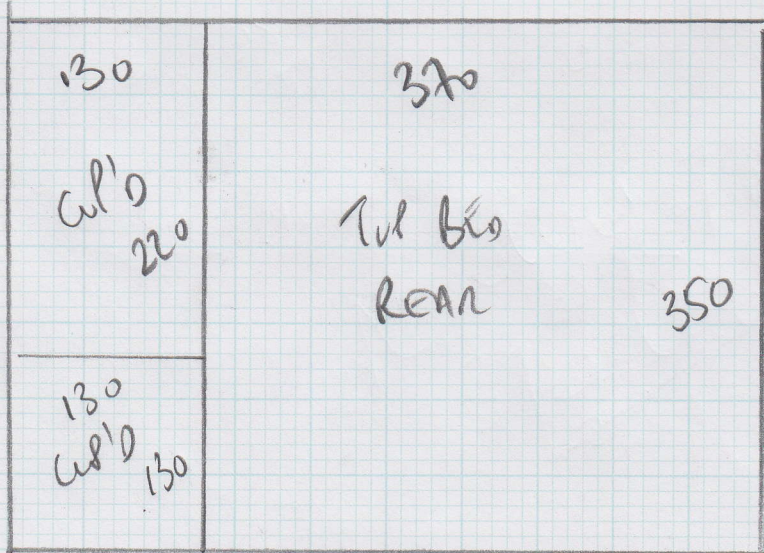 130
CUP'D
220
130
CUP'D
130
370
TOP BED
REAR
350